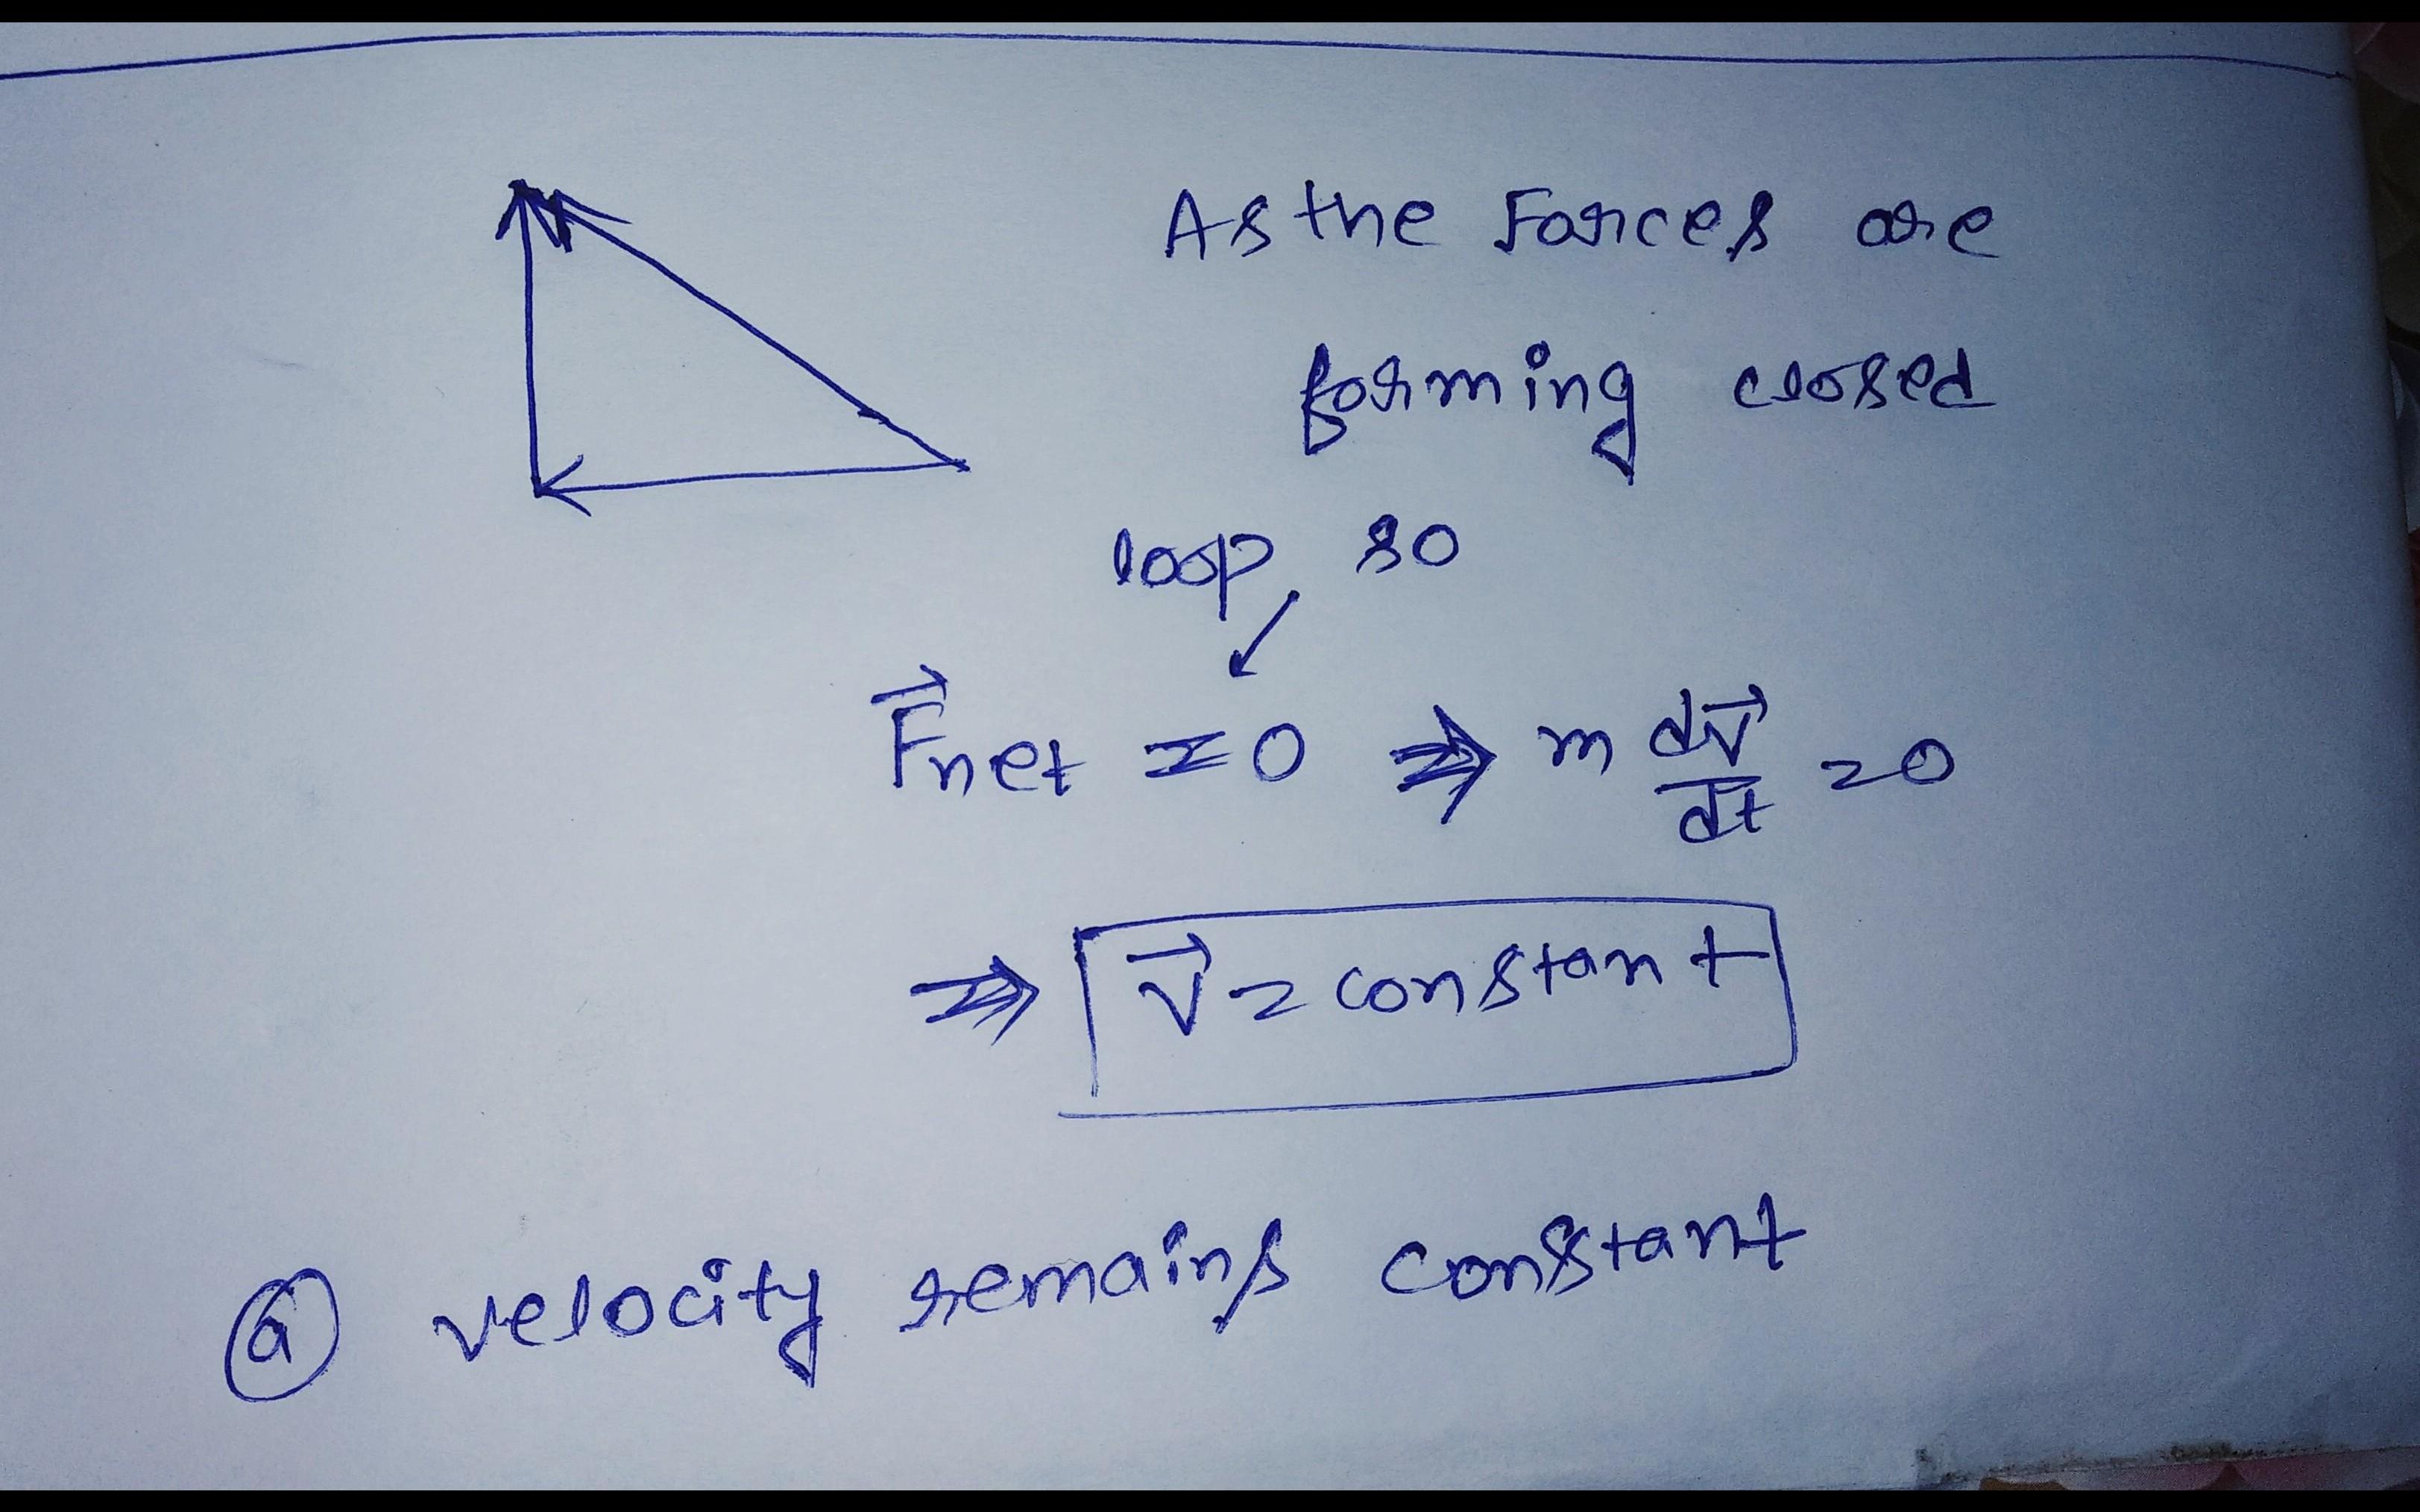 As the Forces are
forming closed
loop, so
F⃗net = 0 ⇒ m dv⃗/dt = 0
⇒ v⃗ = constant
(a) velocity remains constant